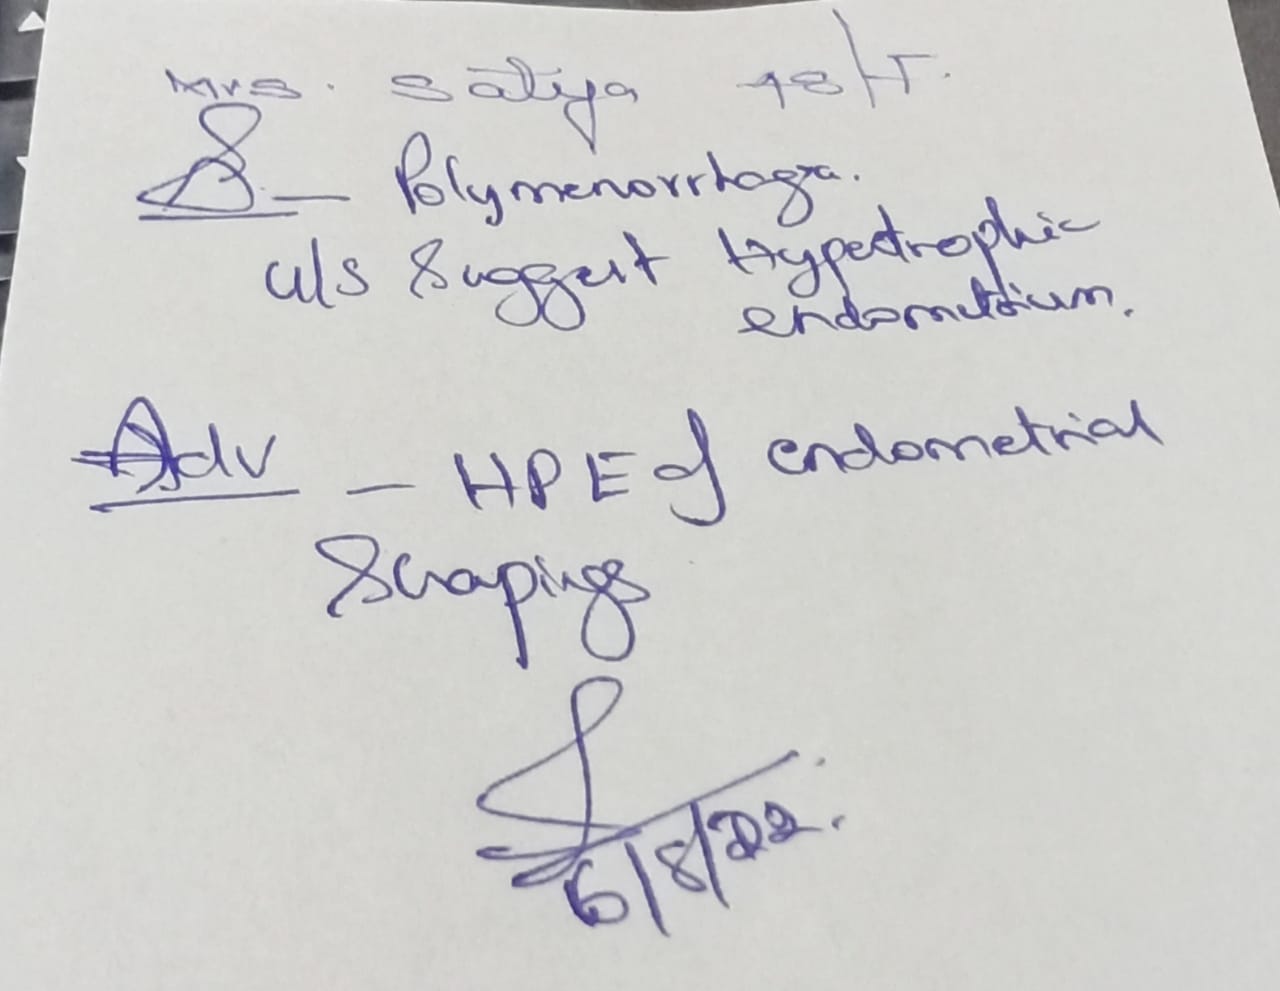 Mrs. Satiya 48/F.
— Polymenorrhagia.
u/s Suggest Hypertrophic
endometrium.
Adv — HPE of endometrial
Scrapings
6/8/22.